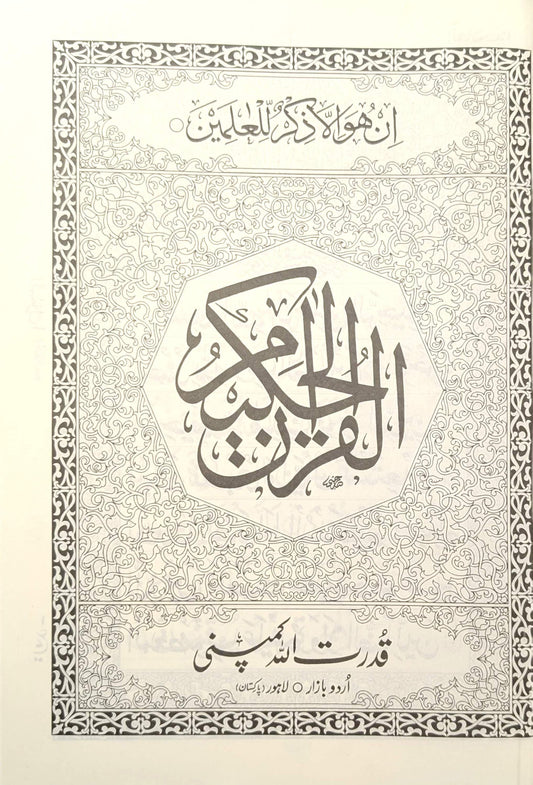 اِنْ هُوَ اِلَّا ذِكْرٌ لِّلْعٰلَمِیْنَ ○
القرآن الحكیم
قُدرت اللہ کمپنی
اُردو بازار ○ لاہور (پاکستان)